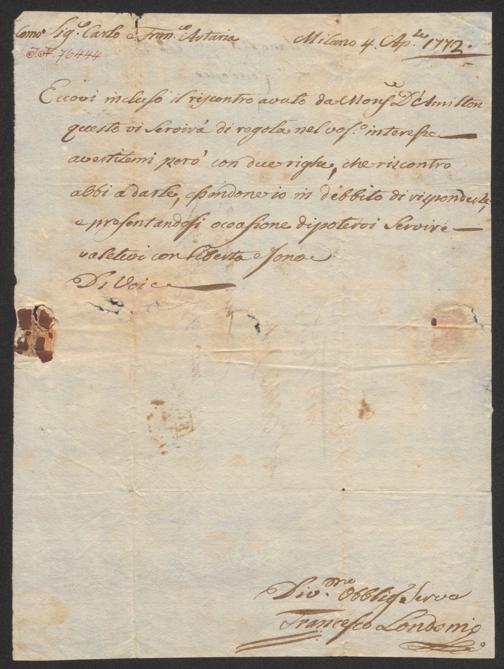 Como Sig.ri Carlo e Fran.co Artaria Milano 4. Ap.le 1772.
I.N. 76444
Eccovi incluso il riscontro avuto da Mons.r D'Amilton
questo vi servirà di regola nel vos.o interesse
avertitemi però con due righe, che riscontro
abbi a darle, essendone io in debbito di risponderle,
e presentandosi occasione di potervi servire
valetevi con libertà e sono
Di Voi
Div.mo Obblig. Serva
Francesco Londonio